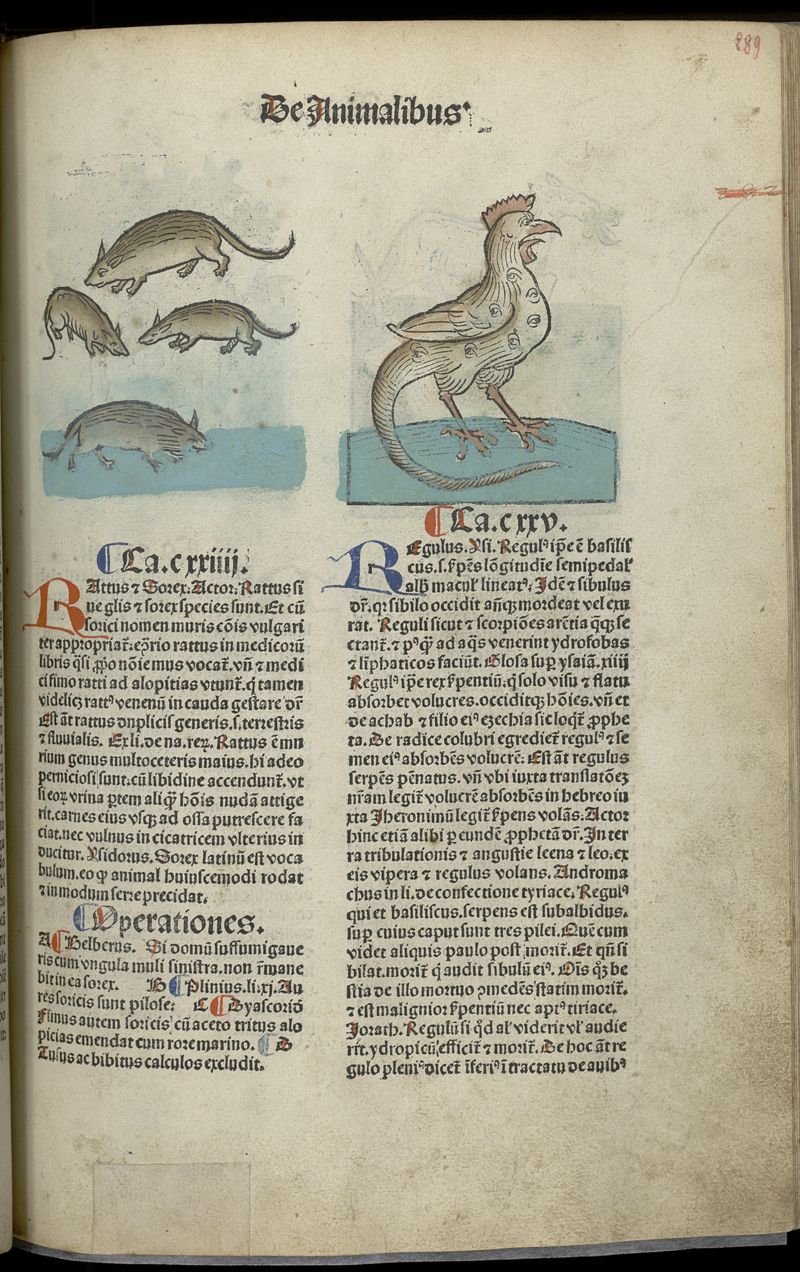 289
De Animalibus
Ca.cxxiiij.
RAttus ⁊ Sorex. Actor. Rattus si
ue glis ⁊ sorex species sunt. Et cū
sorici nomen muris cōis vulgari
ter appropriat̄. eꝓrio rattus in medicorū
libris q̄si ꝓpo nōie mus vocat̄. vñ ⁊ medi
ci fimo ratti ad alopitias vtunt̄. q̄ tamen
videlicꝫ rattꝰ venenū in cauda gestare dr̄
Est āt rattus duplicis generis. s. terrestris
⁊ fluuialis. Ex li. de na. reꝝ. Rattus ē mu
rium genus multo ceteris maius. hi adeo
perniciosi sunt. cū libidine accendunt̄. vt
si eoꝝ vrina ꝑtem aliq̄ hōis nudā attige
rit. carnes eius vsqꝫ ad ossa putrescere fa
ciat. nec vulnus in cicatricem vlterius in
ducitur. Ysidorus. Sorex latinū est voca
bulum. eo ꝙ animal huiuscemodi rodat
⁊ in modum serre precidat.
Operationes.
A Belberus. Si domū suffumigaue
ris cum vngula muli sinistra. non r̄mane
bit in ea sorex. B Plinius. li. xj. Au
res soricis sunt pilose. C Dyascorid̄
Fimus autem soricis cū aceto tritus alo
picias emendat cum rore marino. D
Tusus ac bibitus calculos excludit.
Ca.cxxv.
REgulus. Ysi. Regulꝰ ip̄e ē basilis
cus. s. ẜpēs lōgitudīe semipedal̄
alb̄ macul̄ lineatꝰ. Idē ⁊ sibulus
dr̄. qꝛ sibilo occidit añqꝫ mordeat vel exu
rat. Reguli sicut ⁊ scorpiōes arētia q̄qꝫ se
ctant̄. ⁊ pꝰq̄ ad aq̄s venerint ydrofobas
⁊ līphaticos faciūt. Glosa suꝑ ysaiā. xiiij
Regulꝰ ip̄e rex ẜpentiū. q̄ solo visu ⁊ flatu
absorbet volucres. occiditqꝫ hōies. vñ et
de achab ⁊ filio eiꝰ eꝫechia sic loqt̄ ꝓphe
ta. De radice colubri egrediet̄ regulꝰ ⁊ se
men eiꝰ absorbēs volucrē. Est āt regulus
serpēs pēnatus. vñ vbi iuxta translatōeꝫ
nr̄am legit̄ volucrē absorbēs in hebreo iu
xta Iheronimū legit̄ ẜpens volās. Actor
hinc etiā alibi ꝑ eundē ꝓphetā dr̄. In ter
ra tribulationis ⁊ angustie leena ⁊ leo. ex
eis vipera ⁊ regulus volans. Androma
chus in li. de confectione tyriace. Regulꝰ
qui et basiliscus. serpens est subalbidus.
suꝑ cuius caput sunt tres pilei. Quē cum
videt aliquis paulo post morit̄. Et qn̄ si
bilat. morit̄ q̄ audit sibulū eiꝰ. Oīs qꝫ be
stia de illo mortuo ꝯmedēs statim morit̄.
⁊ est malignior ẜpentiū nec aptꝰ tiriace.
Jorath. Regulū si q̄d al̄ viderit vl̄ audie
rit. ydropicū efficit̄ ⁊ morit̄. De hoc āt re
gulo pleniꝰ dicet̄ īferiꝰ ī tractatu de auibꝰ